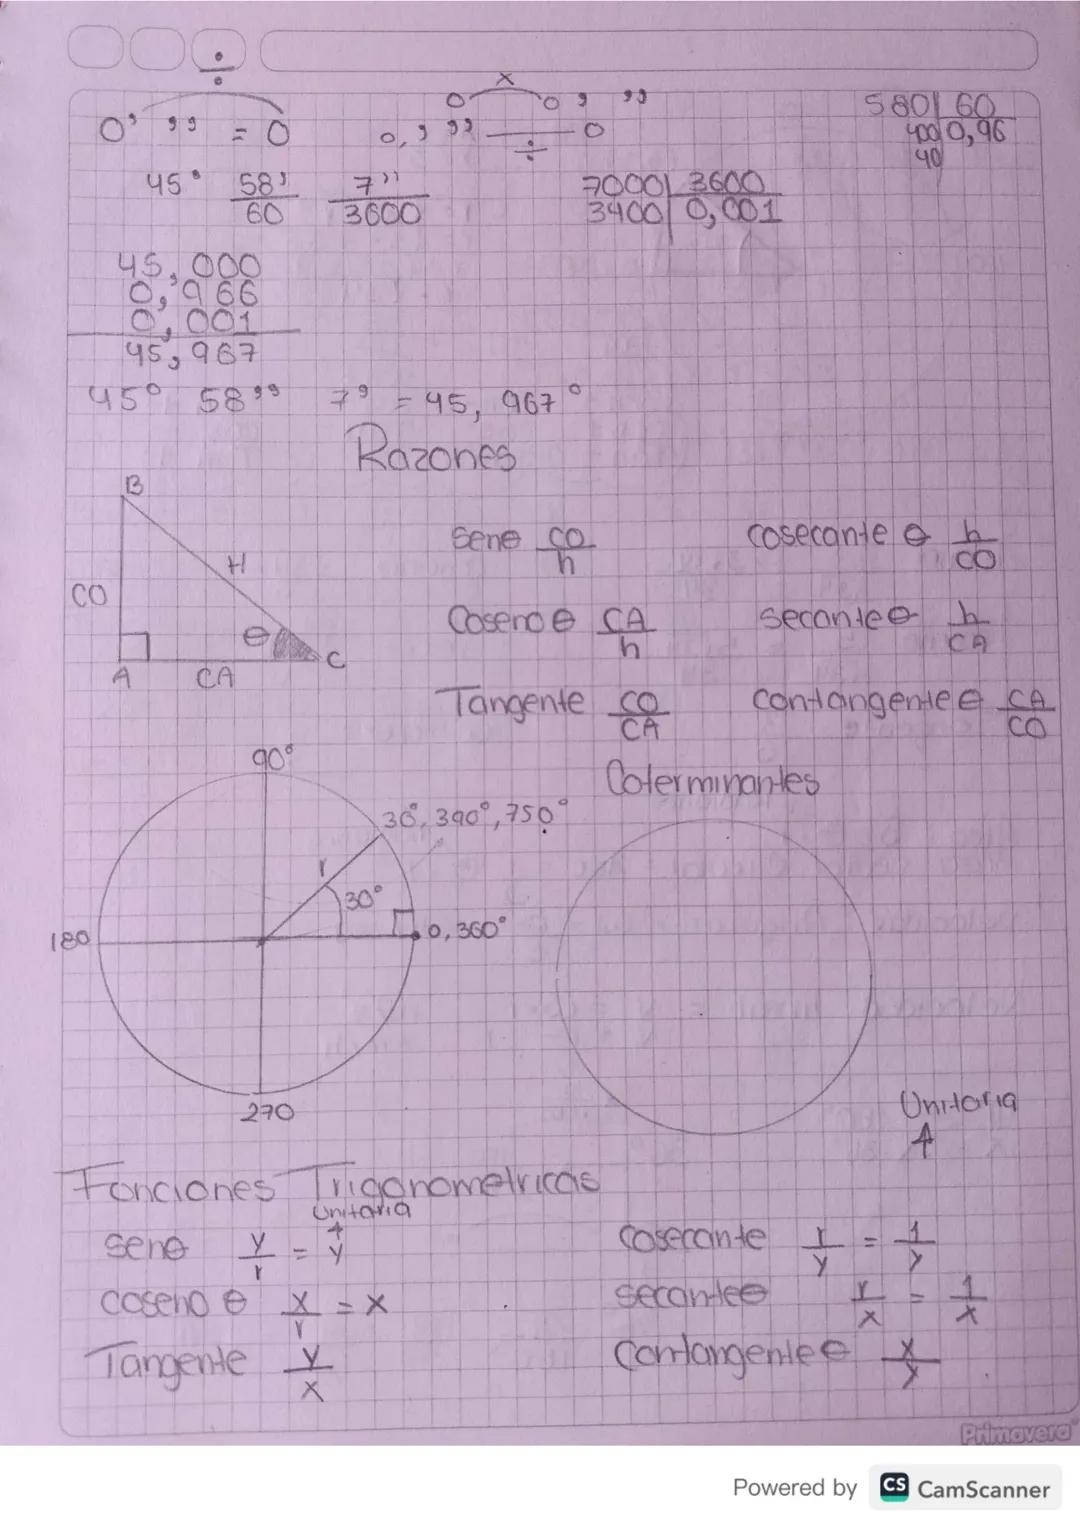 ÷
x
0° ' '' = 0
0, ' '' ÷ 0
0 0 ' ''
580 | 60
400 0,96
40
45° 58'/60 7''/3600
7000 | 3600
3400 | 0,001
45,000
0,966
0,001
45,967
45° 58'' 7' = 45, 967°
Razones
B
H
CO
θ
A CA C
Senθ CO/h cosecante θ h/CO
Coseno θ CA/h secante θ h/CA
Tangente CO/CA contangente θ CA/CO
Coterminantes
90°
30°, 390°, 750°
r
30°
180
0, 360°
270
Unitaria
1
Fonciones Trigonometricas
Unitaria
senθ y/r = y/1 cosecante r/y = 1/y
coseno θ x/r = x secante θ r/x = 1/x
Tangente y/x Contangente θ x/y
Primavera
Powered by CS CamScanner